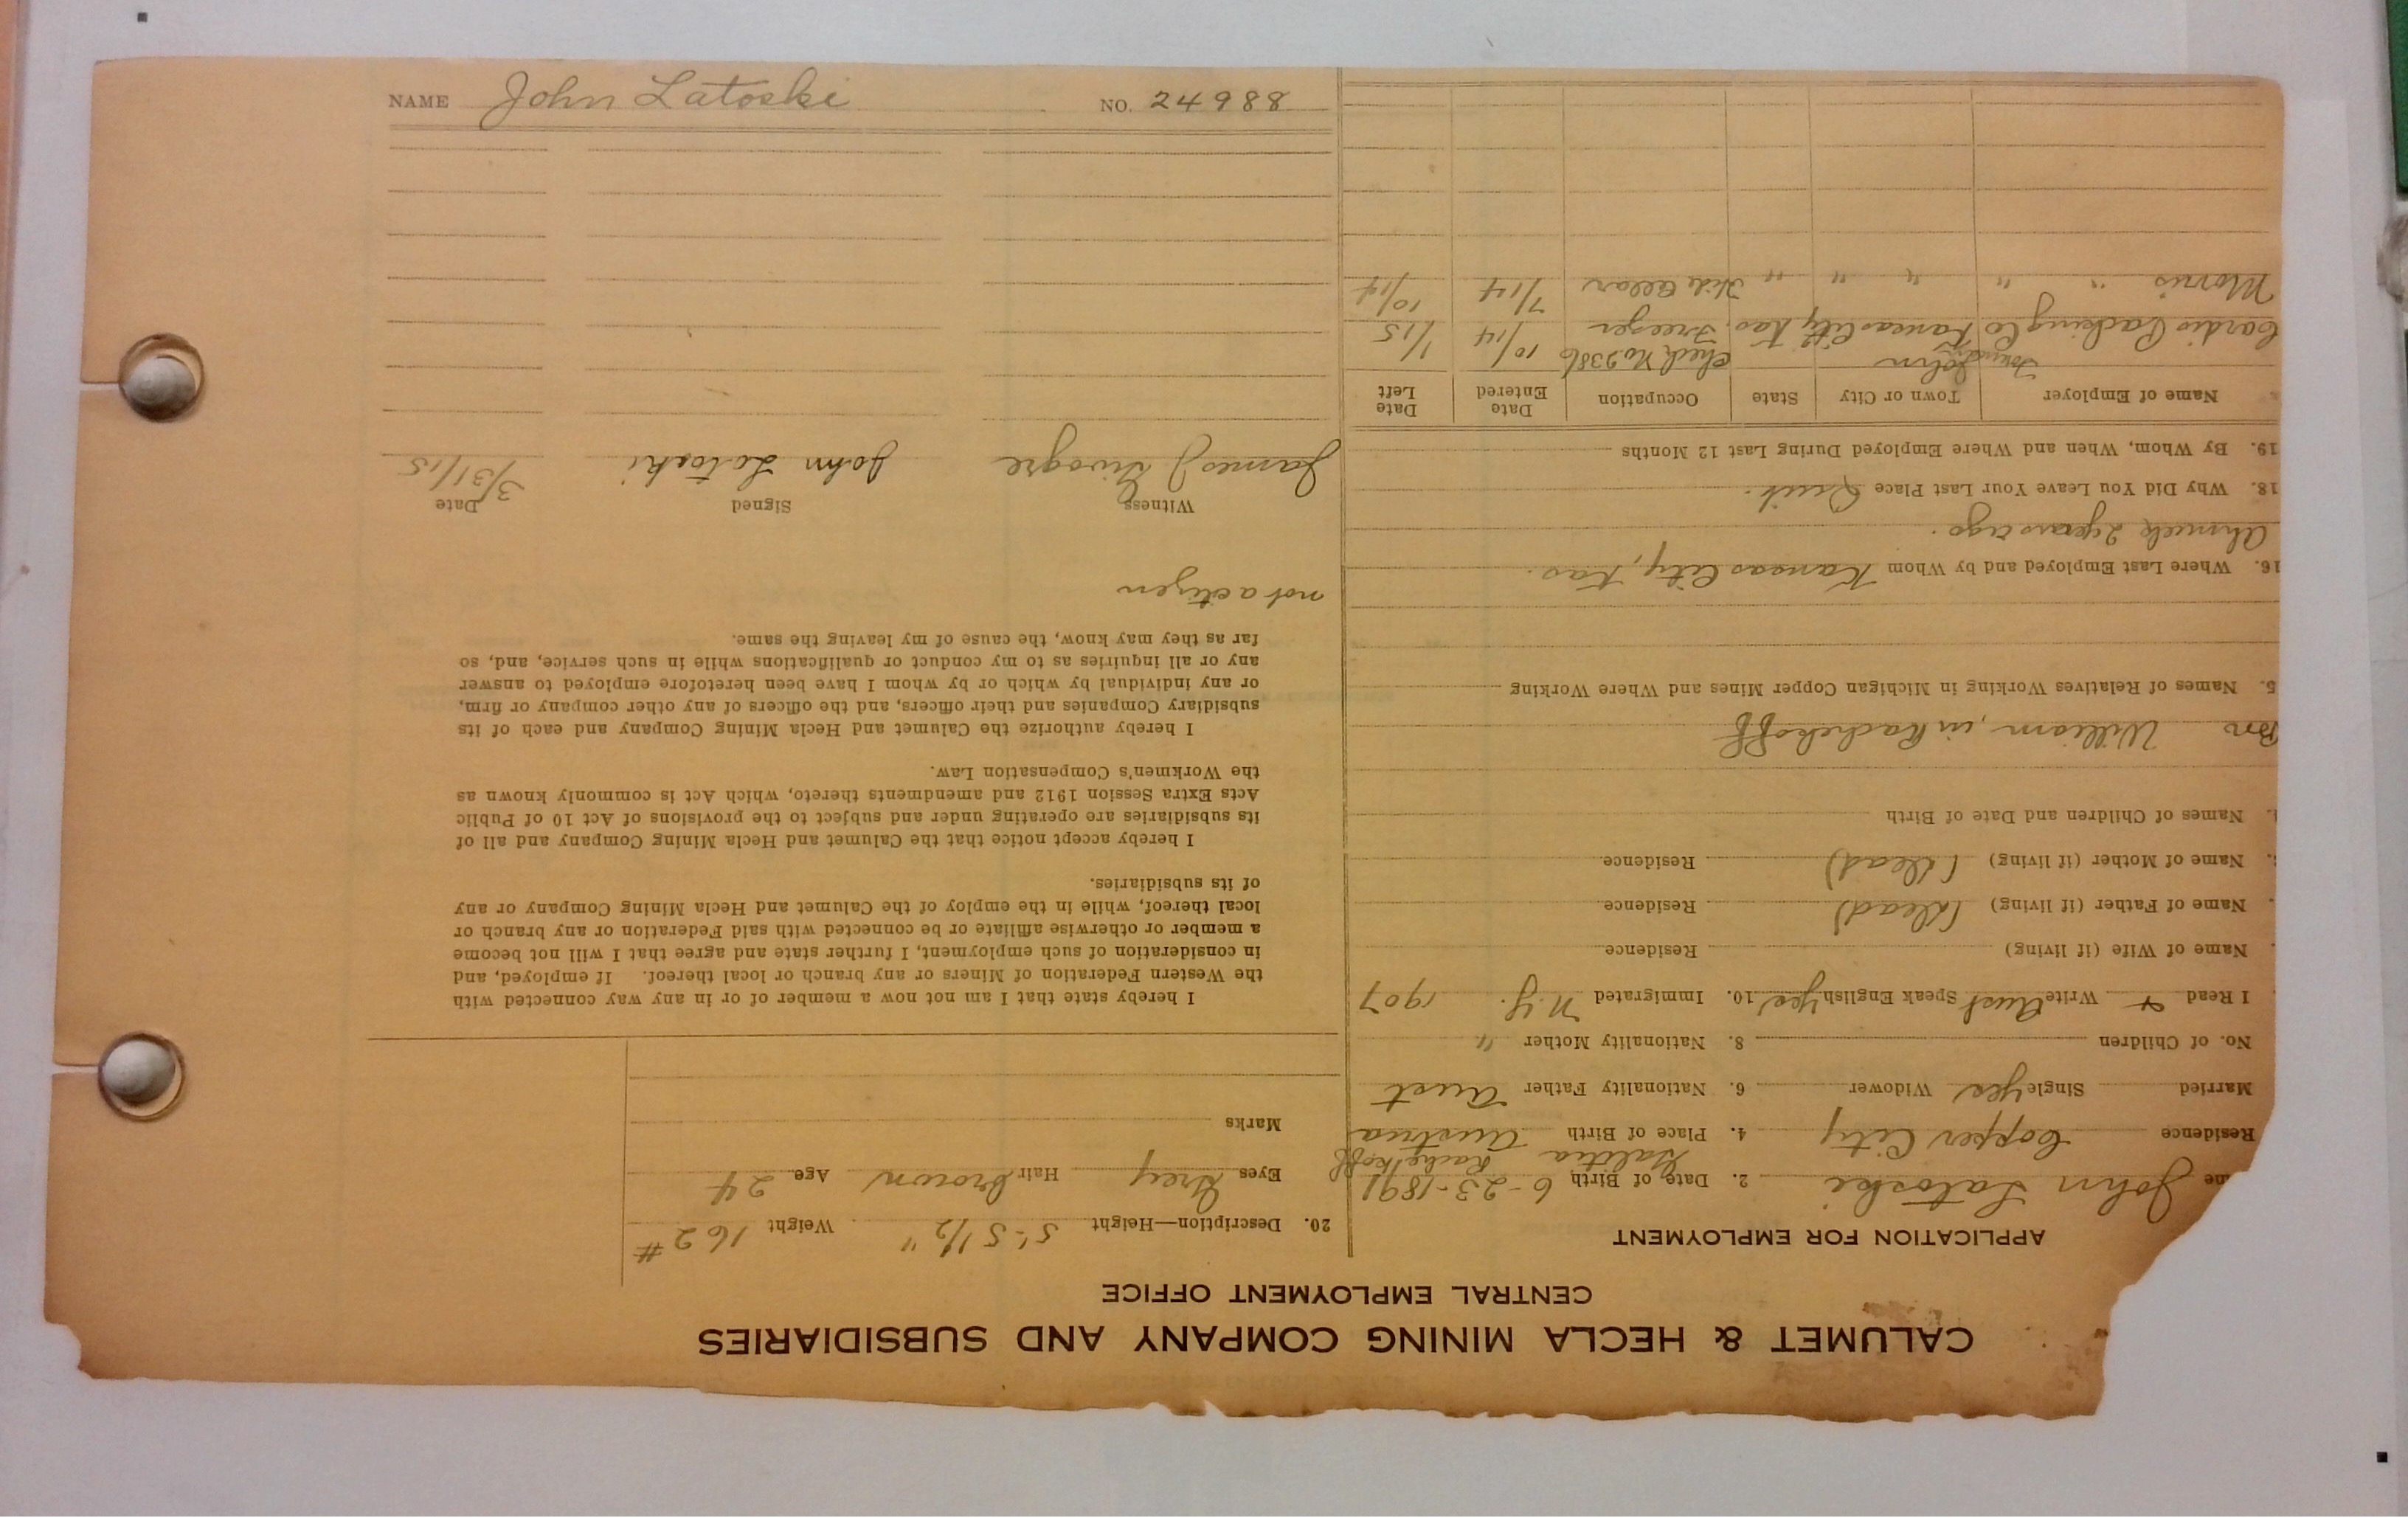 CALUMET & HECLA MINING COMPANY AND SUBSIDIARIES
CENTRAL EMPLOYMENT OFFICE
APPLICATION FOR EMPLOYMENT
me John Latoski 2. Date of Birth 6-23-1891
Residence Copper City 4. Place of Birth Austria
Married Single yes Widower 6. Nationality Father Aust
No. of Children 8. Nationality Mother "
I Read + Write Aust Speak English yes 10. Immigrated N.Y. 1907
Name of Wife (if living) Residence
Name of Father (if living) (dead) Residence
Name of Mother (if living) (dead) Residence
Names of Children and Date of Birth
William, in
5. Names of Relatives Working in Michigan Copper Mines and Where Working
16. Where Last Employed and by Whom Kansas City, Kas.
Ahmeek 2 years ago.
18. Why Did You Leave Your Last Place Quit.
19. By Whom, When and Where Employed During Last 12 Months
Name of Employer Town or City State Occupation Date Entered Date Left
John Check No 9386
Packing Co Kansas City Kas. Freezer 10/14 1/15
Morris " " " " " Hide Cellar 7/14 10/14
20. Description—Height 5'-5 1/2" Weight 162 #
Eyes Grey Hair Brown Age 24
Marks
I hereby state that I am not now a member of or in any way connected with
the Western Federation of Miners or any branch or local thereof. If employed, and
in consideration of such employment, I further state and agree that I will not become
a member or otherwise affiliate or be connected with said Federation or any branch or
local thereof, while in the employ of the Calumet and Hecla Mining Company or any
of its subsidiaries.
I hereby accept notice that the Calumet and Hecla Mining Company and all of
its subsidiaries are operating under and subject to the provisions of Act 10 of Public
Acts Extra Session 1912 and amendments thereto, which Act is commonly known as
the Workmen's Compensation Law.
I hereby authorize the Calumet and Hecla Mining Company and each of its
subsidiary Companies and their officers, and the officers of any other company or firm,
or any individual by which or by whom I have been heretofore employed to answer
any or all inquiries as to my conduct or qualifications while in such service, and, so
far as they may know, the cause of my leaving the same.
not a citizen
Witness Signed Date
James J John Latoski 3/31/15
NAME John Latoski NO. 24988